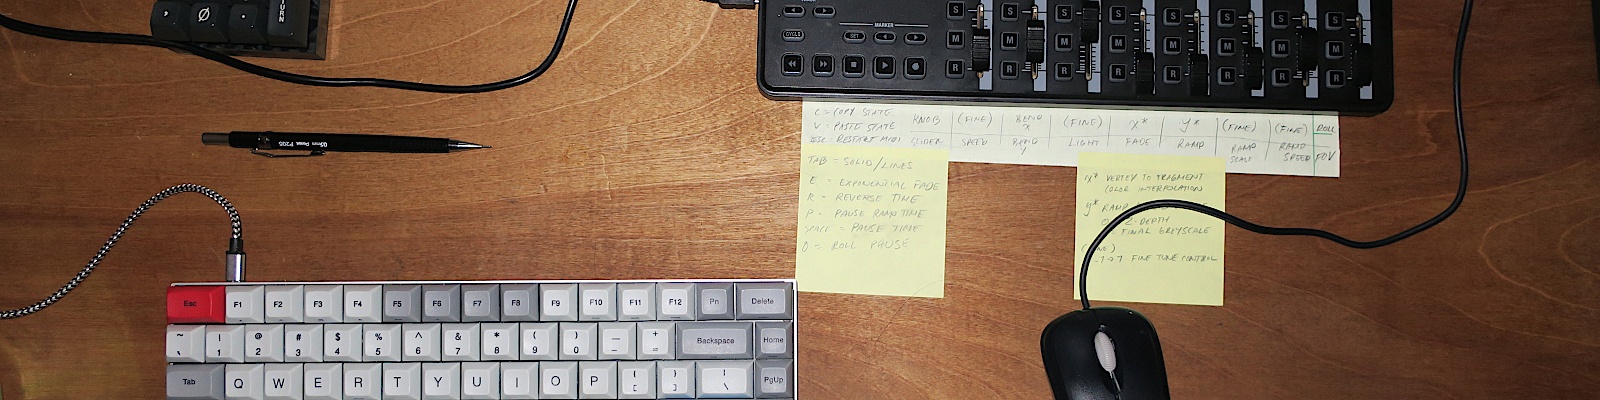 TURN
MARKER
CYCLE
SET
S S S S S S S S
M M M M M M M M
R R R R R R R R
0.5mm Pentel P205
C = COPY STATE
V = PASTE STATE
ESC = RESTART MIDI
KNOB (FINE) BEND X (FINE) X* Y* (FINE) (FINE) ROLL
SLIDER SPEED BEND Y LIGHT FADE RAMP RAMP SCALE RAMP SPEED FOV
TAB = SOLID/LINES
E = EXPONENTIAL FADE
R = REVERSE TIME
P = PAUSE RAMP TIME
SPACE = PAUSE TIME
O = ROLL PAUSE
X* VERTEX TO FRAGMENT
COLOR INTERPOLATION
Y* RAMP
Z-DEPTH
FINAL GREYSCALE
-1→1 FINE TUNE CONTROL
Esc F1 F2 F3 F4 F5 F6 F7 F8 F9 F10 F11 F12 Pn Delete
~ ! @ # $ % ^ & * ( ) — +
` 1 2 3 4 5 6 7 8 9 0 - = Backspace Home
Tab Q W E R T Y U I O P { } | PgUp
[ ] \